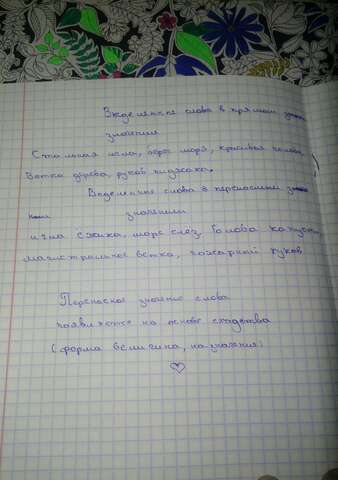 Выделенные слова в прямом
значении
Стальная игла, берег моря, красивая голова,
Ветка дерева, рукав пиджака.
Выделенные слова в переносном
значении
игла ёжика, море слёз, голова капусты
магистральное ветка, пожарный рукав
Переносное значение слова
появляется на основе сходства
(форма величина, назначения)